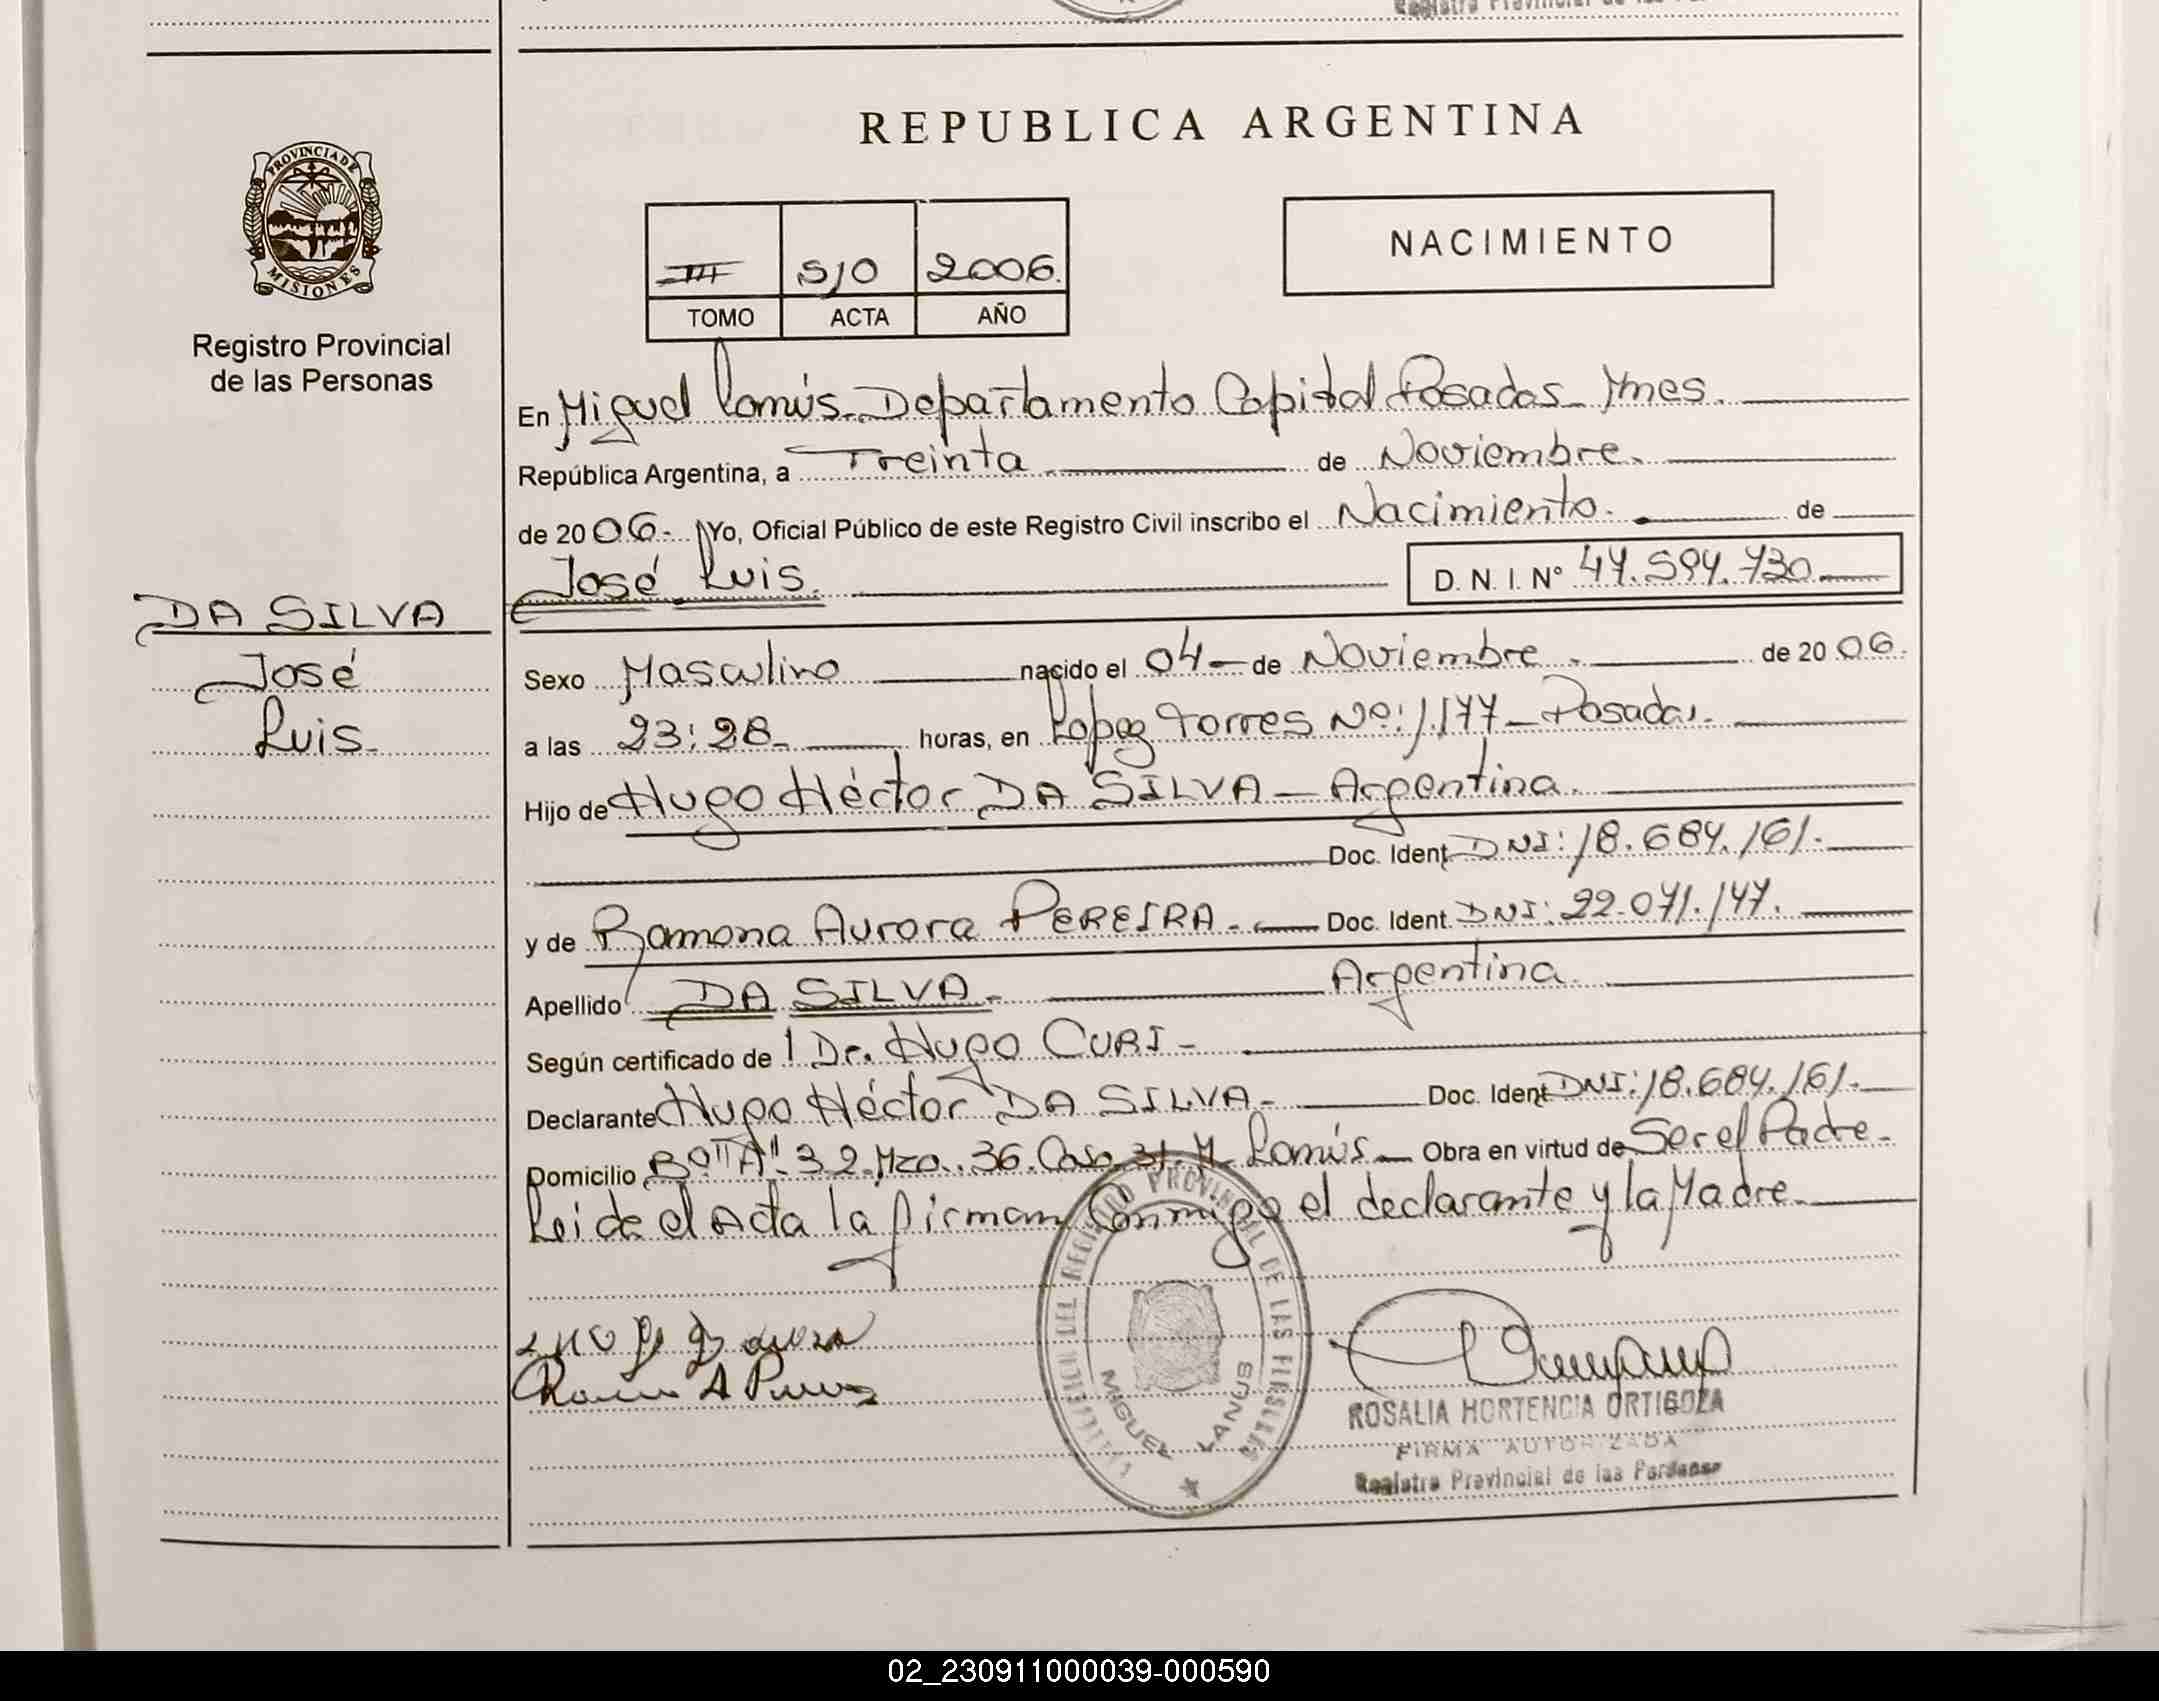 Registro Provincial de las
REPUBLICA ARGENTINA
PROVINCIA DE
MISIONES
Registro Provincial
de las Personas
III 510 2006.
TOMO ACTA AÑO
NACIMIENTO
En Miguel Lanús. Departamento Capital Posadas Mnes.
República Argentina, a Treinta de Noviembre.
de 2006.- Yo, Oficial Público de este Registro Civil inscribo el Nacimiento. de
José Luis. D. N. I. Nº 47.594.730
DA SILVA
José
Luis.
Sexo Masculino nacido el 04 de Noviembre. de 2006.
a las 23:28 horas, en Lopez Torres Nº: 1.177 - Posadas.
Hijo de Hugo Héctor DA SILVA - Argentina.
Doc. Ident. DNI: 18.684.161.
y de Ramona Aurora PEREIRA. Doc. Ident. DNI: 22.071.147.
Apellido DA SILVA. Argentina.
Según certificado de Dr. Hugo CURI -
Declarante Hugo Héctor DA SILVA. Doc. Ident DNI: 18.684.161.
Domicilio Bº "A" 3 2. Mza. 36. Casa. 31. M. Lanús Obra en virtud de Ser el Padre.
Leida el Acta la firman Conmigo el declarante y la Madre.
DEL REGISTRO PROVINCIAL DE LAS PERSONAS
MIGUEL LANUS
ROSALIA HORTENCIA ORTIGOZA
FIRMA AUTORIZADA
Registro Provincial de las Personas
02_230911000039-000590